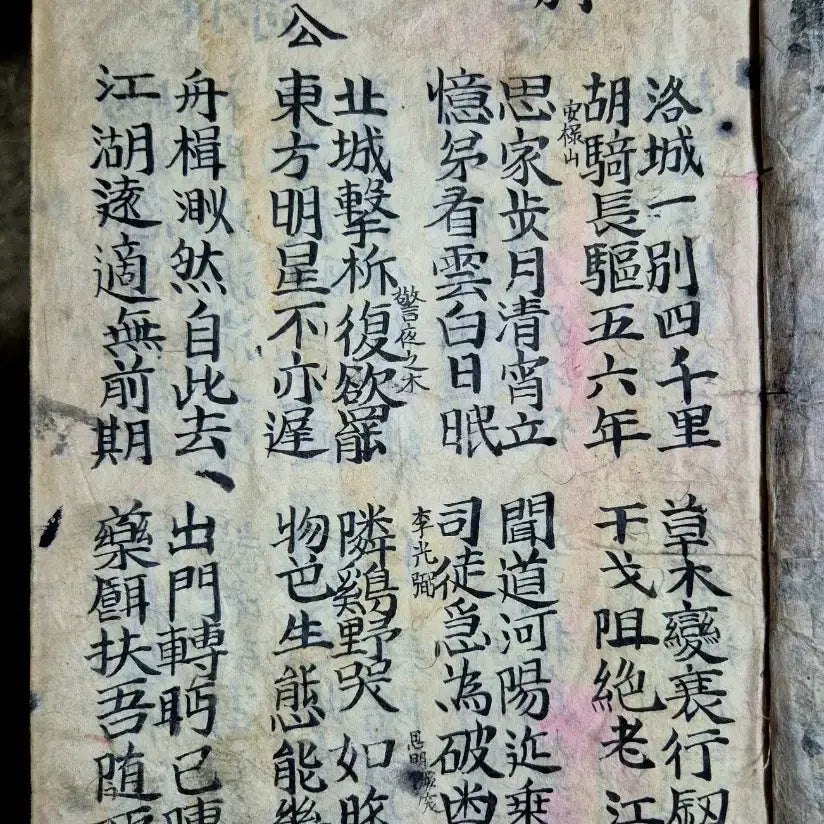 別
洛城一別四千里
胡騎長驅五六年
安祿山
草木變衰行劒
干戈阻絕老江
思家步月清宵立
憶弟看雲白日眠
聞道河陽近乘
司徒急為破幽
李光弼
思明
公
北城擊柝復欲罷
警夜之木
東方明星不亦遲
隣鷄野哭如昨
物色生態能幾
舟楫渺然自此去
江湖遠適無前期
出門轉眄已陳
藥餌扶吾随